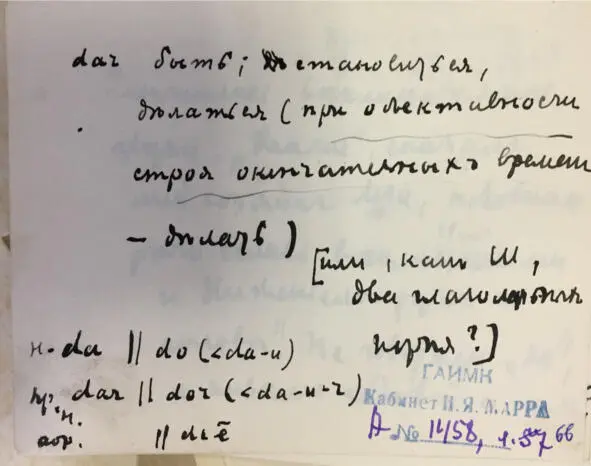 dar быть; становиться,
дѣлаться (при объективности
строя окончательныхъ времен
— дѣлать)
[или, какъ Ш,
два глагольныхъ
корня?]
н. da || do (<da-u)
пр. dar || dor (<da-u-r)
"н.
аор. || du-ē
ГАИМК
Кабинет Н. Я. МАРРА
A № 1458,
66